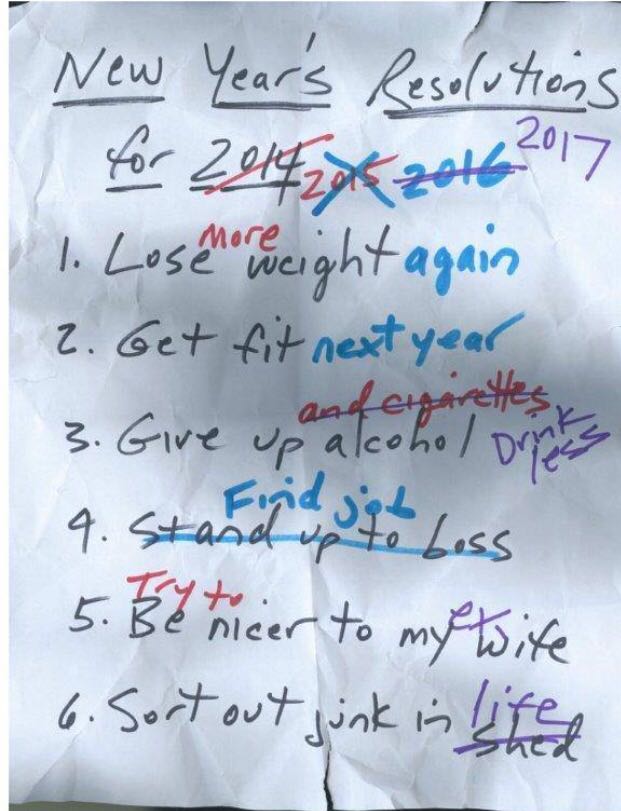 New Year's Resolutions
for 2014 2015 2016 2017
1. Lose more weight again
2. Get fit next year
and cigarettes
3. Give up alcohol Drink less
Find job
4. Stand up to boss
Try to
5. Be nicer to my ex wife
6. Sort out junk in life shed